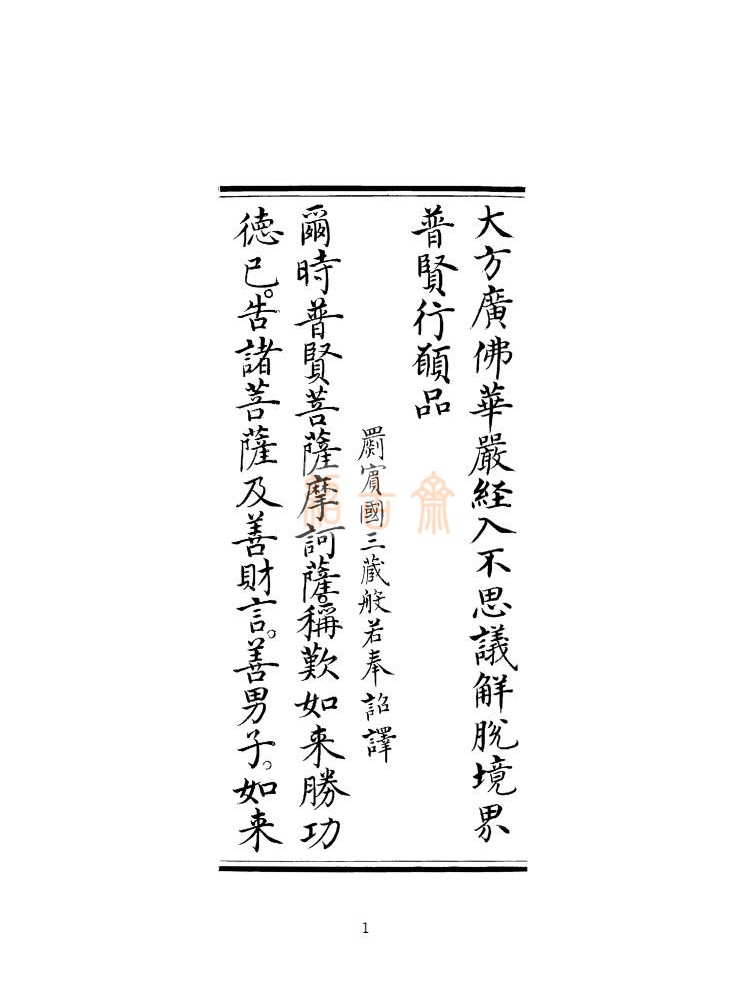 大方廣佛華嚴経入不思議解脫境界
普賢行願品
罽賓國三藏般若奉詔譯
爾時普賢菩薩摩訶薩。稱歎如来勝功
徳已。告諸菩薩及善財言。善男子。如来
福吉齋
1